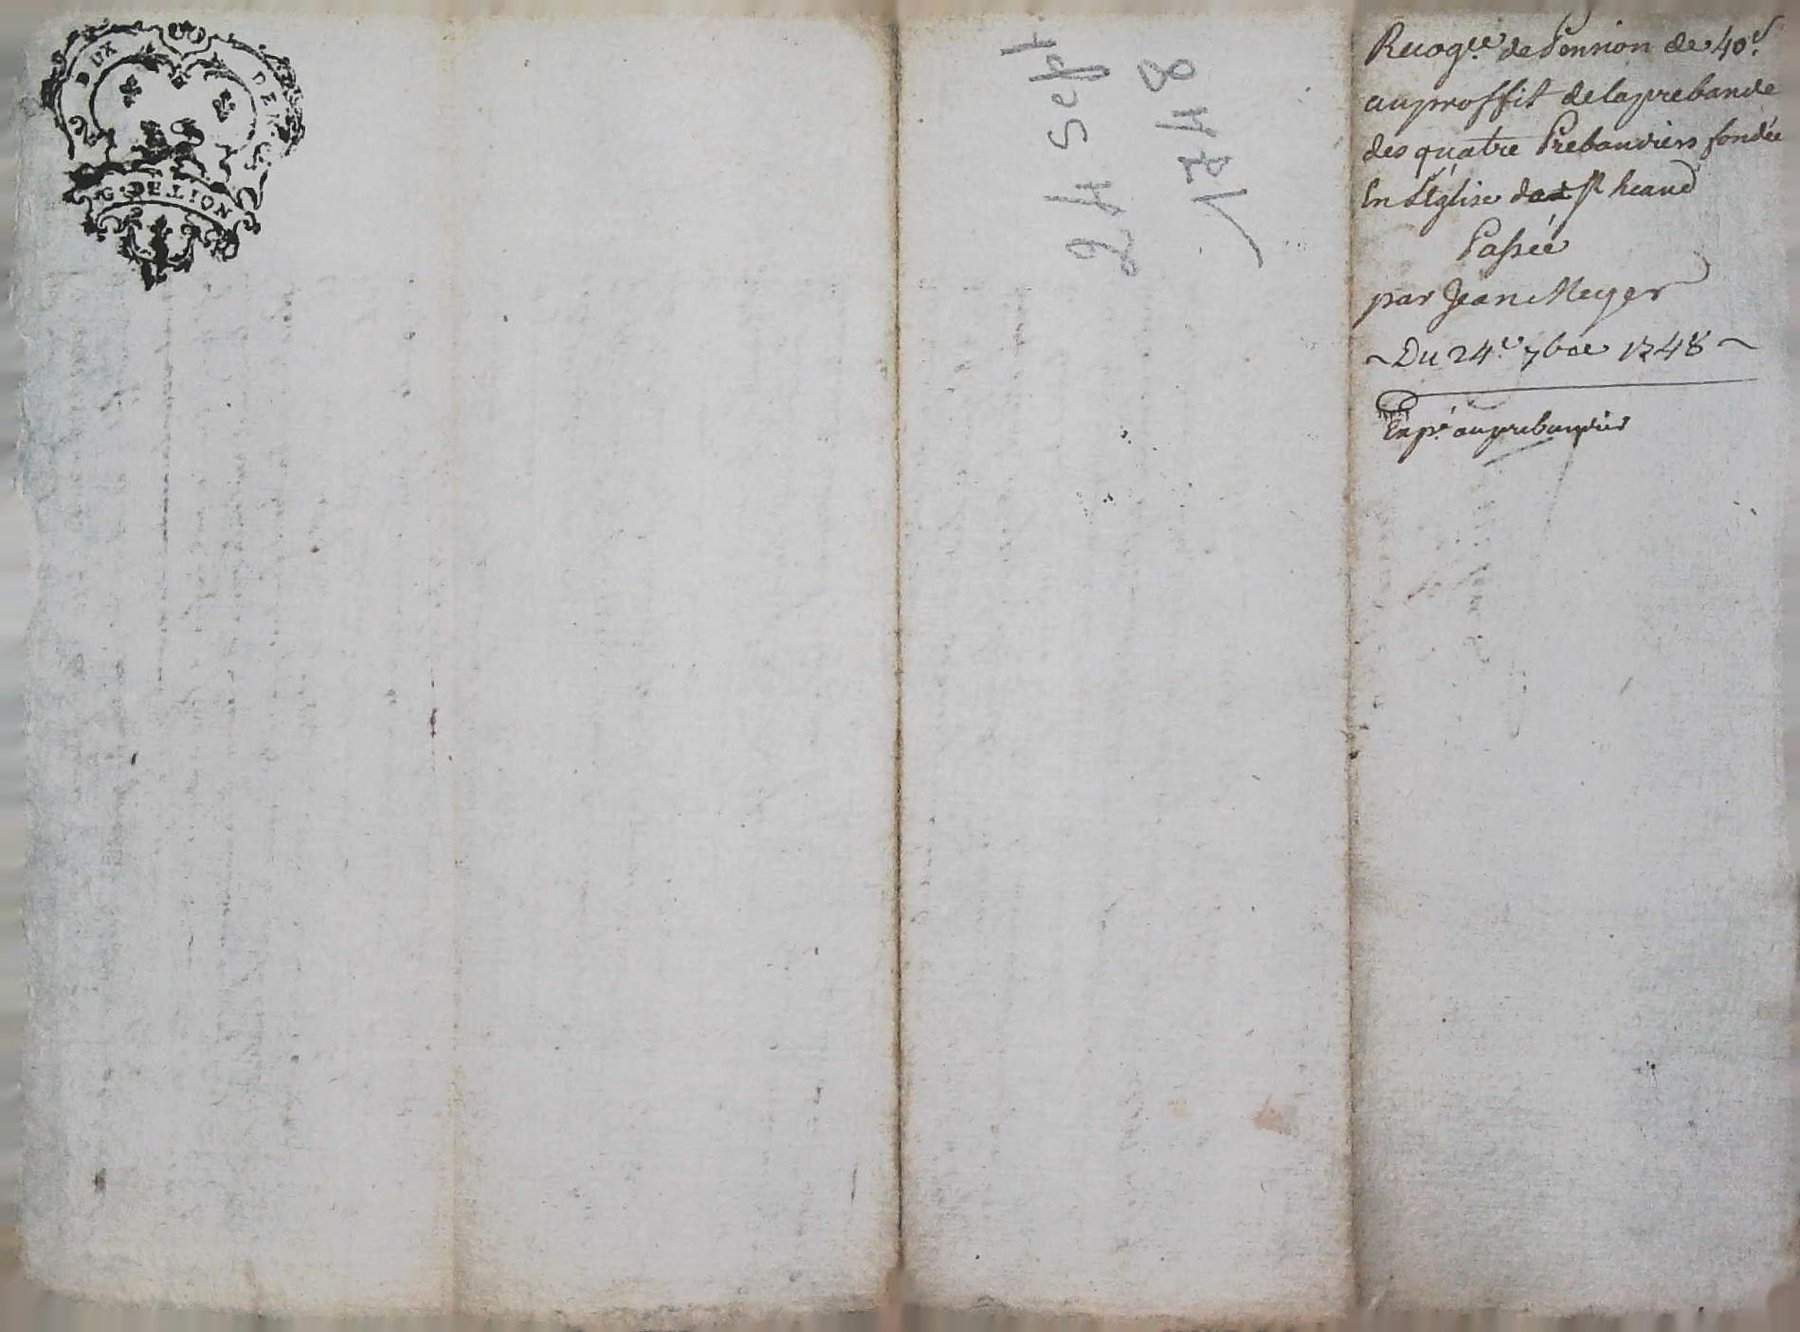 DEUX DEN
G. DE LION
24 Sept
1748
Recog.ce de Pension de 40.s
au proffit de la prebande
des quatre Prebandiers fondée
En L'Église de St heand
Passée
par Jean Meyer
~ Du 24.e 7bre 1748 ~
Exp.é au prebandier